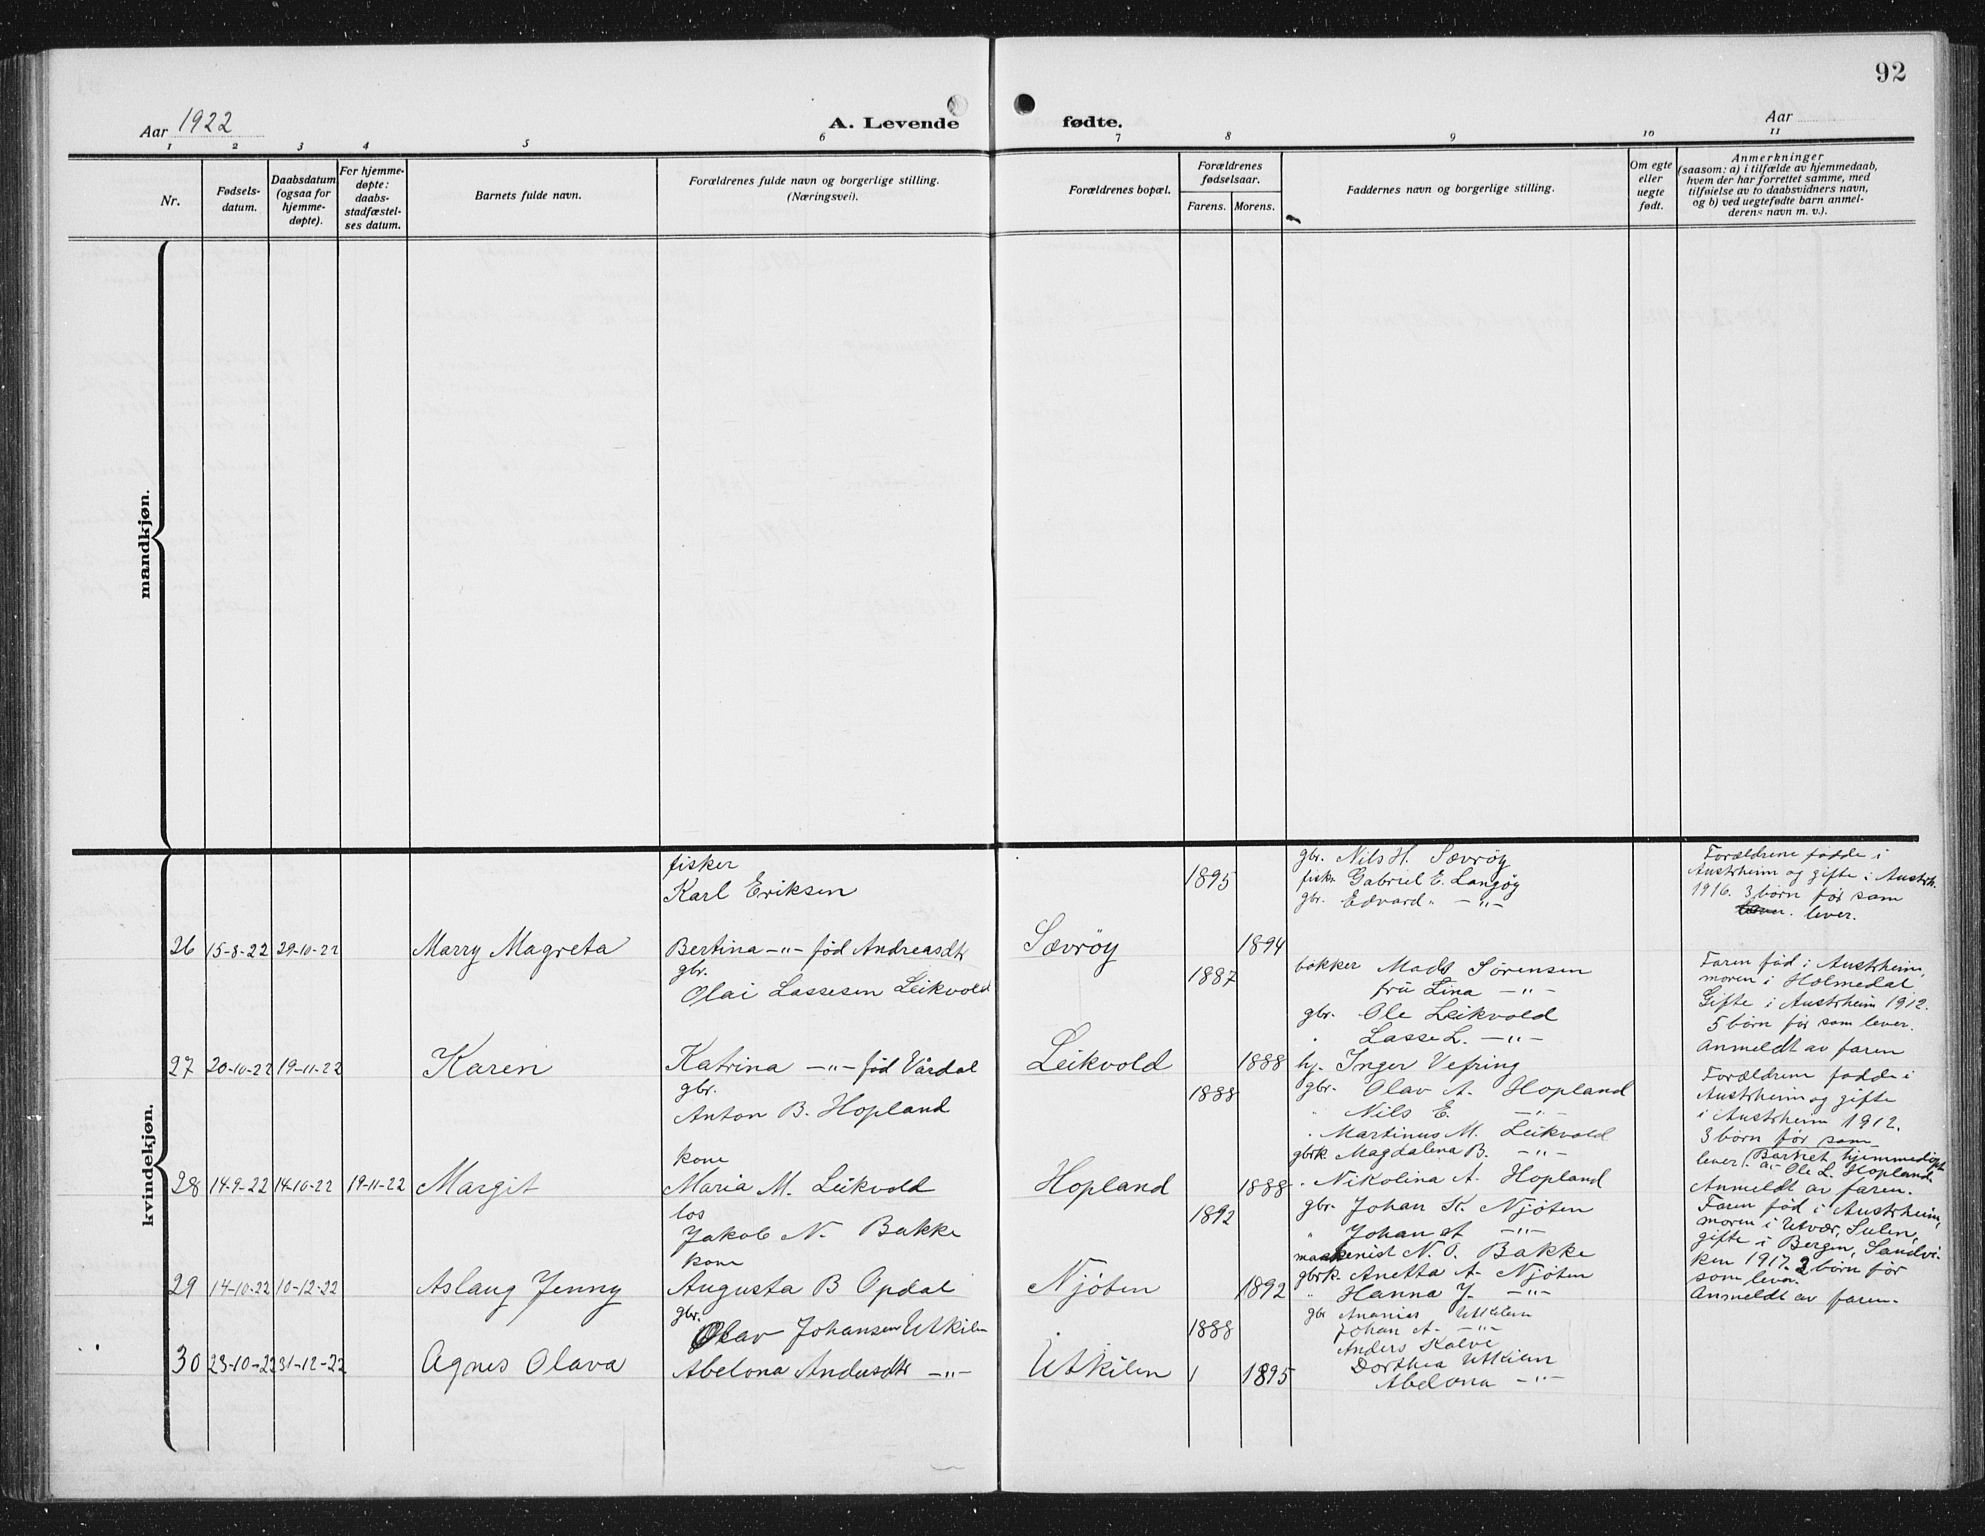 92
Aar 1922
A. Levende fødte.
Aar
1 2 3 4 5 6 7 8 9 10 11
Nr.
Fødsels-
datum.
Daabsdatum
(ogsaa for
hjemme-
døpte).
For hjemme-
døpte:
daabs-
stadfæstel-
ses datum.
Barnets fulde navn.
Forældrenes fulde navn og borgerlige stilling.
(Næringsvei).
Forældrenes bopæl.
Forældrenes
fødselsaar.
Farens. Morens.
Faddernes navn og borgerlige stilling.
Om egte
eller
uegte
født.
Anmerkninger
(saasom: a) i tilfælde av hjemmedaab,
hvem der har forrettet samme, med
tilføielse av to daabsvidners navn,
og b) ved uegtefødte barn anmel-
derens navn m. v.).
mandkjøn.
kvindekjøn.
26 15-8-22 29-10-22
Marry Magreta
fisker
Karl Eriksen
Bertina -"- fød Andreasdtr
Sævrøy
1895
1894
gbr. Nils H. Sævrøy
fisk. Gabriel E. Langøy
gbr. Edvard " -"-
Forældrene fødde i
Austrheim og gifte i Austrh.
1916. 3 børn før som
lever.
27 20-10-22 19-11-22
Karen
gbr.
Olai Lassesen Leikvold
Katrina -"- fød Vårdal
Leikvold
1887
1888
bakker Mads Sørensen
fru Lina -"-
gbr. Ole Leikvold
Lasse L. -"-
hj. Inger Vefring
Faren fød i Austrheim,
moren i Holmedal
Gifte i Austrheim 1912.
5 børn før som lever.
Anmeldt av faren
28 14-9-22 14-10-22 19-11-22
Margit
gbr.
Anton B. Hopland
kone
Maria M. Leikvold
Hopland
1888
1888
gbr. Olav A. Hopland
" Nils E. -"-
. Martinus M. Leikvold
gbrk. Magdalena B. -"-
. Nikolina A. Hopland
Forældrene fødde i
Austrheim og gifte
i Austrheim 1912.
3 børn før som
lever. Barnet hjemmedøpt
av Ole L. Hopland.
Anmeldt av faren.
29 14-10-22 10-12-22
Aslaug Jenny
los
Jakob N. Bakke
kone
Augusta B Opdal
Njøten
1892
1892
gbr. Johan K. Njøten
" Johan A -"-
maskenist N. O. Bakke
gbrk. Anetta A. Njøten
" Hanna J. -"-
Faren fød i Austrheim,
moren i Utvær, Sulen,
gifte i Bergen, Sandvi-
ken 1917. 2 børn før
som lever.
Anmeldt av faren.
30 23-10-22 31-12-22
Agnes Olava
gbr.
Olav Johansen Utkilen
Abelona Andersdtr -"-
Utkilen
1888
1895
gbr Ananias Utkilen
Johan A. -"-
Anders Kalve
Dorthea Utkilen
Abelona -"-